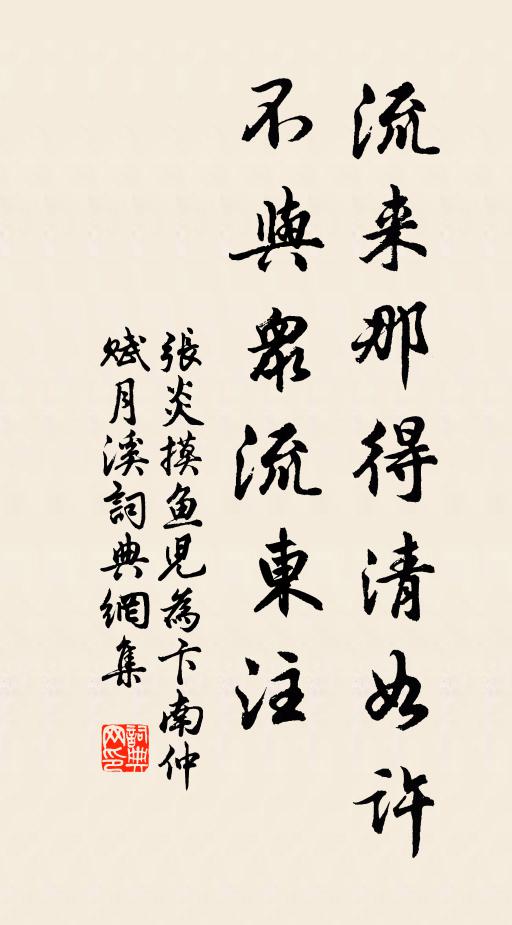 流来那得清如許
不與眾流東注
張炎摸魚兒為卞南仲
賦月溪詞典網集
詞典
网印